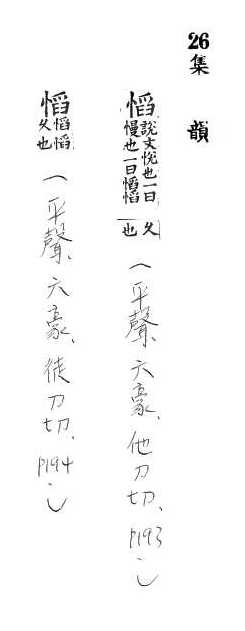 26集　韻
慆說文悅也一曰慢也一曰慆慆久也（平聲、六豪、他刀切、P193。）
慆慆慆久也（平聲、六豪、徒刀切、P194。）